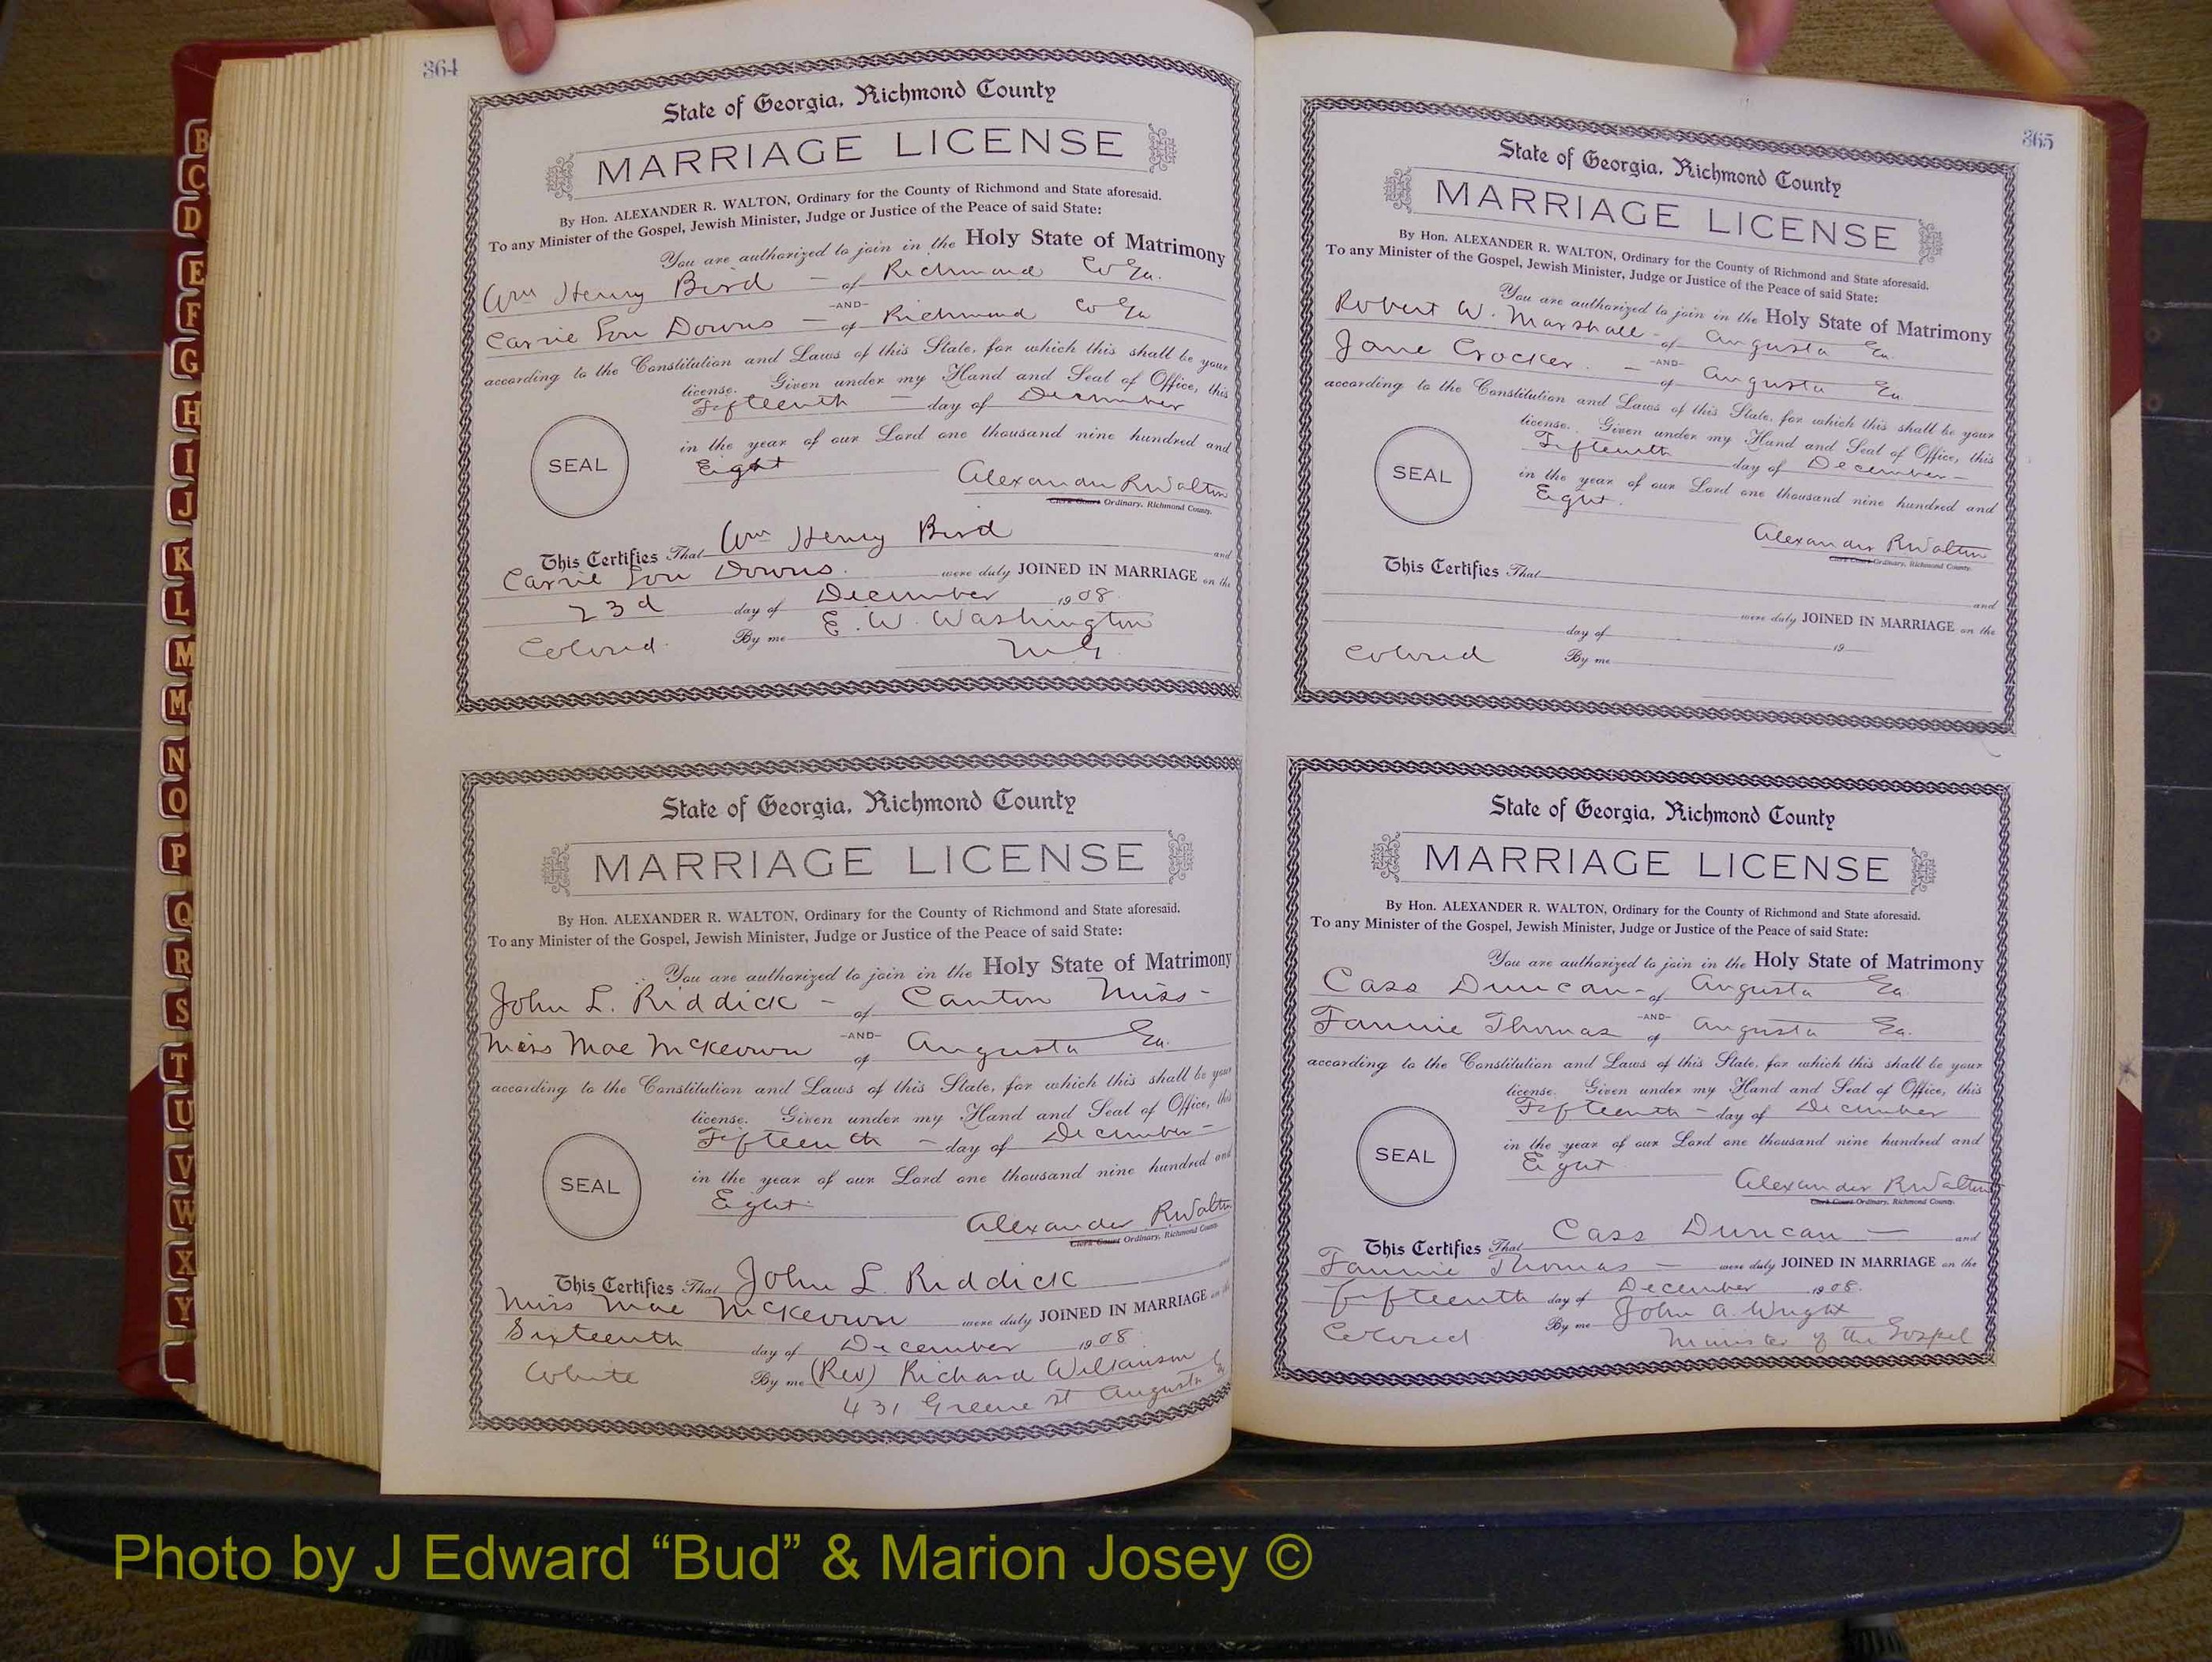 364
State of Georgia, Richmond County
MARRIAGE LICENSE
By Hon. ALEXANDER R. WALTON, Ordinary for the County of Richmond and State aforesaid.
To any Minister of the Gospel, Jewish Minister, Judge or Justice of the Peace of said State:
You are authorized to join in the Holy State of Matrimony
Wm Henry Bird - of Richmond Co Ga.
-AND-
Carrie Lou Downs - of Richmond Co Ga
according to the Constitution and Laws of this State, for which this shall be your
license. Given under my Hand and Seal of Office, this
Fifteenth - day of December
in the year of our Lord one thousand nine hundred and
SEAL
Eight
Alexander R Walton
Clerk Court Ordinary, Richmond County.
This Certifies That Wm Henry Bird and
Carrie Lou Downs. were duly JOINED IN MARRIAGE on the
23d day of December 1908
Colored. By me E. W. Washington
M G
State of Georgia, Richmond County
MARRIAGE LICENSE
By Hon. ALEXANDER R. WALTON, Ordinary for the County of Richmond and State aforesaid.
To any Minister of the Gospel, Jewish Minister, Judge or Justice of the Peace of said State:
You are authorized to join in the Holy State of Matrimony
John L. Riddick - of Canton Miss-
-AND-
Miss Mae McKeown of Augusta Ga.
according to the Constitution and Laws of this State, for which this shall be your
license. Given under my Hand and Seal of Office, this
Fifteenth - day of December-
in the year of our Lord one thousand nine hundred and
SEAL
Eight
Alexander R Walton
Clerk Court Ordinary, Richmond County
This Certifies That John L. Riddick and
Miss Mae McKeown were duly JOINED IN MARRIAGE on the
Sixteenth day of December 1908
White By me (Rev) Richard Wilkinson
431 Greene St Augusta Ga
365
State of Georgia, Richmond County
MARRIAGE LICENSE
By Hon. ALEXANDER R. WALTON, Ordinary for the County of Richmond and State aforesaid.
To any Minister of the Gospel, Jewish Minister, Judge or Justice of the Peace of said State:
You are authorized to join in the Holy State of Matrimony
Robert W. Marshall - of Augusta Ga.
-AND-
Jane Crocker. - of Augusta Ga.
according to the Constitution and Laws of this State, for which this shall be your
license. Given under my Hand and Seal of Office, this
Fifteenth day of December-
in the year of our Lord one thousand nine hundred and
SEAL
Eight.
Alexander R Walton
Clerk Court Ordinary, Richmond County.
This Certifies That
and
were duly JOINED IN MARRIAGE on the
day of 19
Colored By me
State of Georgia, Richmond County
MARRIAGE LICENSE
By Hon. ALEXANDER R. WALTON, Ordinary for the County of Richmond and State aforesaid.
To any Minister of the Gospel, Jewish Minister, Judge or Justice of the Peace of said State:
You are authorized to join in the Holy State of Matrimony
Cass Duncan - of Augusta Ga.
-AND-
Fannie Thomas of Augusta Ga.
according to the Constitution and Laws of this State, for which this shall be your
license. Given under my Hand and Seal of Office, this
Fifteenth - day of December
in the year of our Lord one thousand nine hundred and
SEAL
Eight
Alexander R Walton
Clerk Court Ordinary, Richmond County.
This Certifies That Cass Duncan - and
Fannie Thomas - were duly JOINED IN MARRIAGE on the
fifteenth day of December 1908.
Colored By me John A. Wright
Minister of the Gospel
B
C
D
E
F
G
H
I
J
K
L
M
Mc
N
O
P
Q
R
S
T
U
V
W
X
Y
Photo by J Edward “Bud” & Marion Josey ©